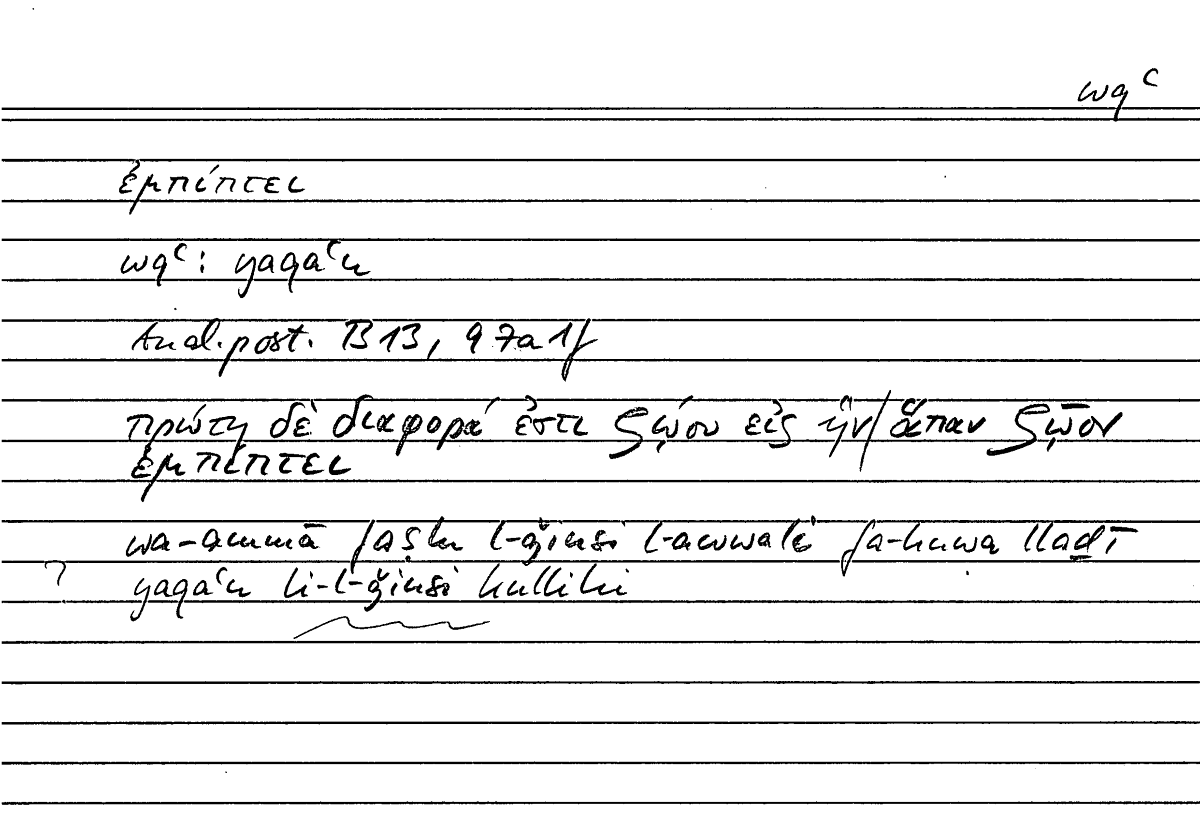 wqʿ
ἐμπίπτει
wqʿ: yaqaʿu
Anal. post. B 13, 97a 1f
πρώτη δὲ διαφορά ἐστι ζῴου εἰς ἣν/ἅπαν ζῷον
ἐμπίπτει
wa-ammā faṣlu l-ǧinsi l-awwali fa-huwa lladī
? yaqaʿu li-l-ǧinsi kullihi